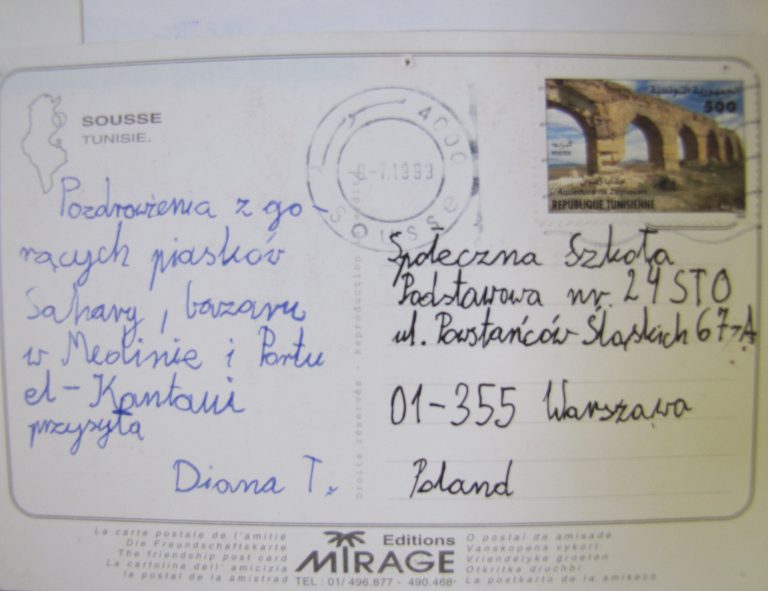 SOUSSE
TUNISIE.
4000
-7.1999
Sousse
الجمهورية التونسية
500
البريد
POSTES
L'Aqueduc de Zaghouan
REPUBLIQUE TUNISIENNE
Pozdrowienia z go-
rących piasków
Sahary, bazaru
w Medinie i Portu
el-Kantaui
przysyła
Diana T.
Społeczna Szkoła
Podstawowa nr. 24 STO
ul. Powstańców Śląskich 67-A
01-355 Warszawa
Poland
Droits réservés - Reproduction
La carte postale de l'amitié
Die Freundschaftskarte
The friendship post card
La cartolina dell' amicizia
la postal de la amistrad
Editions
MIRAGE
TEL : 01/ 496.877 - 490.468-
O postal de amisade
Vanskopens vykort
Vriendelyke groeten
Otkritka druchbi
La postkarto de la amikeco